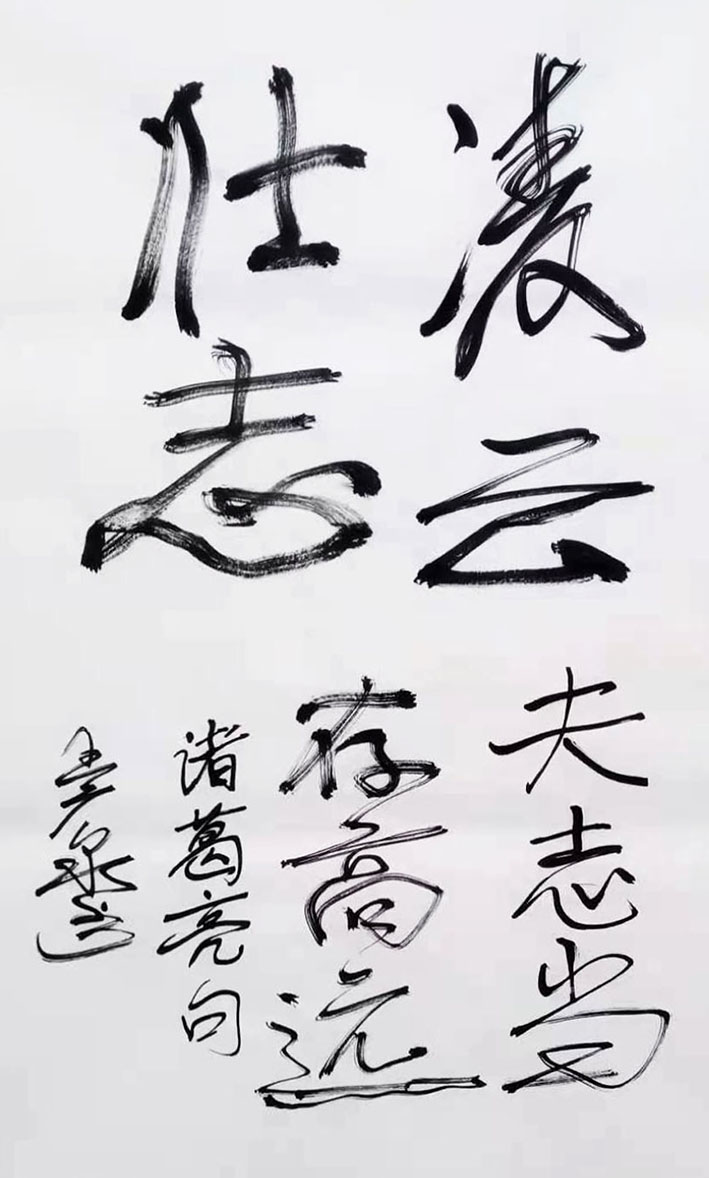 凌云
仕志
夫志当
存高远
诸葛亮句